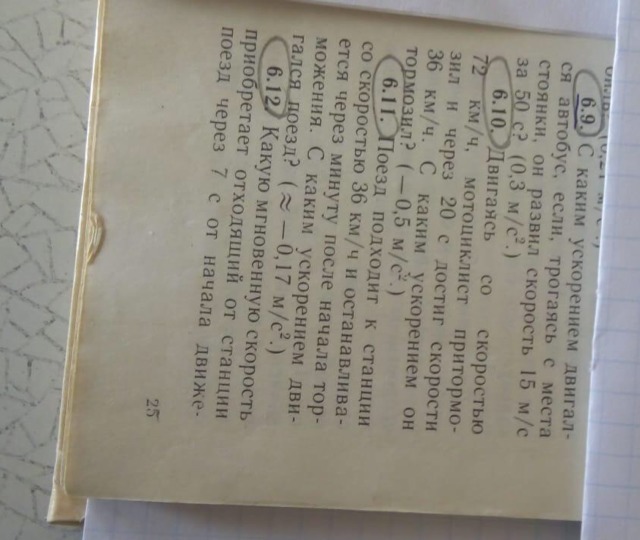 6.9. С каким ускорением двигал-
ся автобус, если, трогаясь с места
стоянки, он развил скорость 15 м/с
за 50 с? (0,3 м/с².)
6.10. Двигаясь со скоростью
72 км/ч, мотоциклист притормо-
зил и через 20 с достиг скорости
36 км/ч. С каким ускорением он
тормозил? (—0,5 м/с².)
6.11. Поезд подходит к станции
со скоростью 36 км/ч и останавлива-
ется через минуту после начала тор-
можения. С каким ускорением дви-
гался поезд? (≈ —0,17 м/с².)
6.12. Какую мгновенную скорость
приобретает отходящий от станции
поезд через 7 с от начала движе-
25